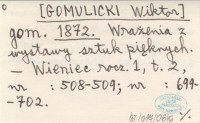 [GOMULICKI Wiktor]
gom. 1872. Wrażenia z
wystawy sztuk pięknych.
— Wieniec rocz. 1, t. 2,
nr : 508-509; nr : 699-
-702.